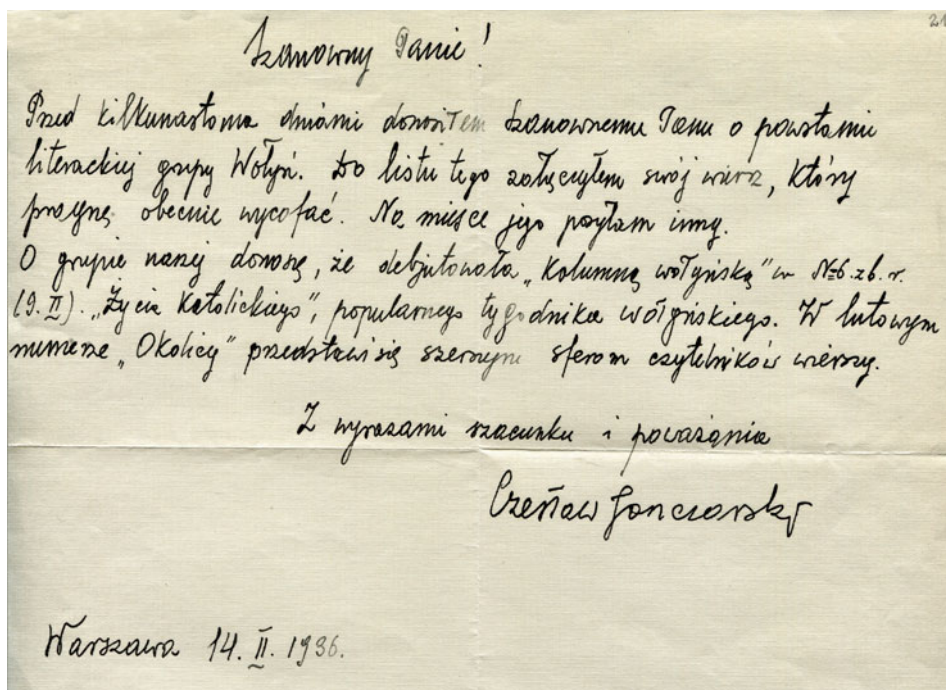 21
Szanowny Panie!
Przed kilkunastoma dniami donosiłem Szanownemu Panu o powstaniu
literackiej grupy Wołyń. Do listu tego załączyłem swój wiersz, który
pragnę obecnie wycofać. Na miejsce jego posyłam inny.
O grupie naszej donoszę, że debjutowała „Kolumną wołyńską" w №6. z b. r.
(9. II). „Życia Katolickiego", popularnego tygodnika wołyńskiego. W lutowym
numerze „Okolicy" przedstawi się szerszym sferom czytelników wierszy.
Z wyrazami szacunku i poważania
Czesław Janczarski
Warszawa 14. II. 1936.